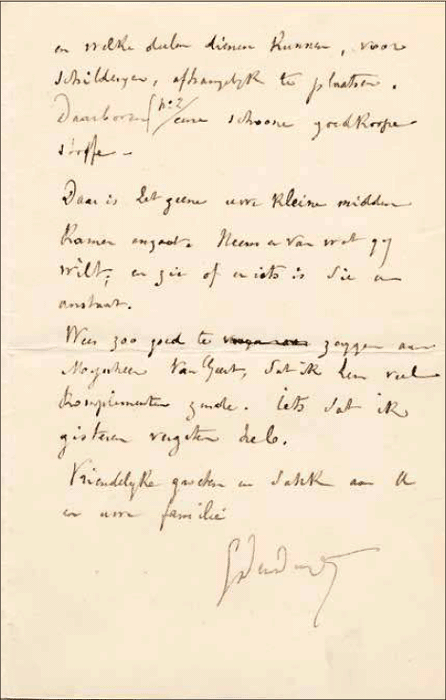 en welke deelen dienen kunnen, voor
schilderyen, afhangelyk te plaatsen.
Daarboven nº 2/ eene schoone goedkoope
stoffe –
Daar is het geene uwe kleine midden
kamer angaat. Neem er van wat gy
wilt; en zie of er iets is die u
anstaat.
Wees zoo goed te zeggen aan
Mynheer Van Geert, dat ik hem veel
komplimenten zende. iets dat ik
gisteren vergeten heb.
Vriendelyke groeten en dank aan U
en uwe familie